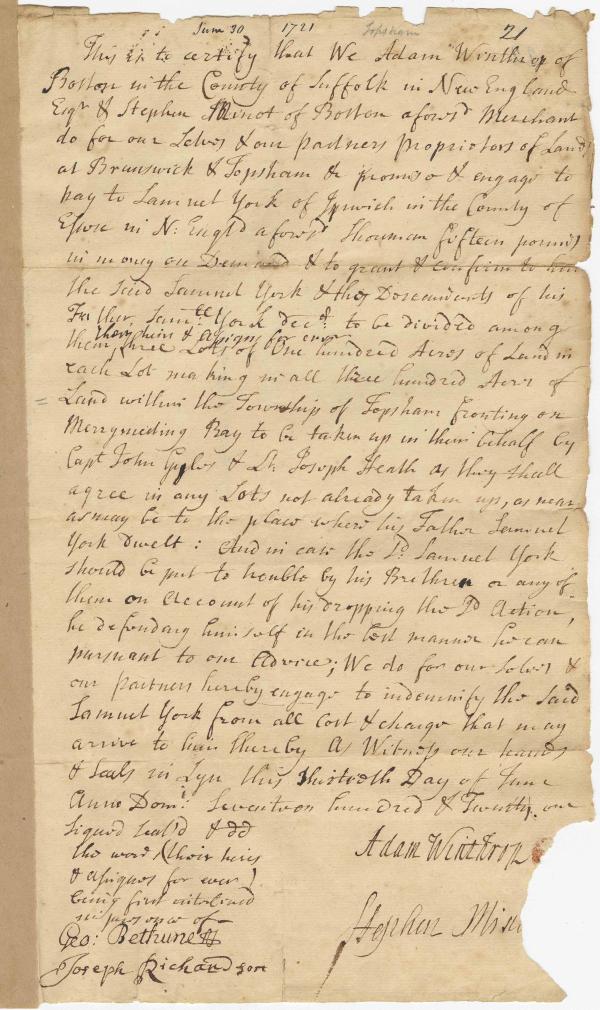 June 30 1721 Topsham 21
This is to certify that We Adam Winthrop of
Boston in the County of Suffolk in New England
Esqr & Stephen Minot of Boston aforsd Merchant
do for our Selves & our partners Proprietors of Land
at Brunswick & Topsham & promise & engage to
pay to Samuel York of Ipswich in the County of
Essex in N: Engld aforsd fifteen pounds
in money on Demand & to grant & confirm to him
the said Samuel York & the Descendants of his
Father, Samll York decd. to be divided among
their heirs & assigns for ever
them, three Lots of One hundred Acres of Land in
each Lot making in all three hundred Acrs of
Land within the Township of Topsham fronting on
Merrymeeting Bay to be taken up in their behalf by
Capt John Gyles & Lt. Joseph Heath as they shall
agree in any Lots not already taken up, as near
as may be to the place where his Father Samuel
York Dwelt: And in case the sd. Samuel York
should be put to trouble by his Brethren or any of
them on Account of his dropping the sd Action,
he defending himself in the best manner he can
pursuant to our Advice; We do for our Selves &
our partners hereby engage to indemnify the said
Samuel York from all Cost & charge that may
arrive to him thereby As Witness our hands
& Seals in Lyn this thirtieth Day of June
Anno Domi: Seventeen hundred & Twenty one
Signed Seal'd & dd
the words (their heirs
& assignes for ever)
being first interlined
in presence of
Geo: Bethune
Joseph Richardson
Adam Winthrop
Stephen Mino